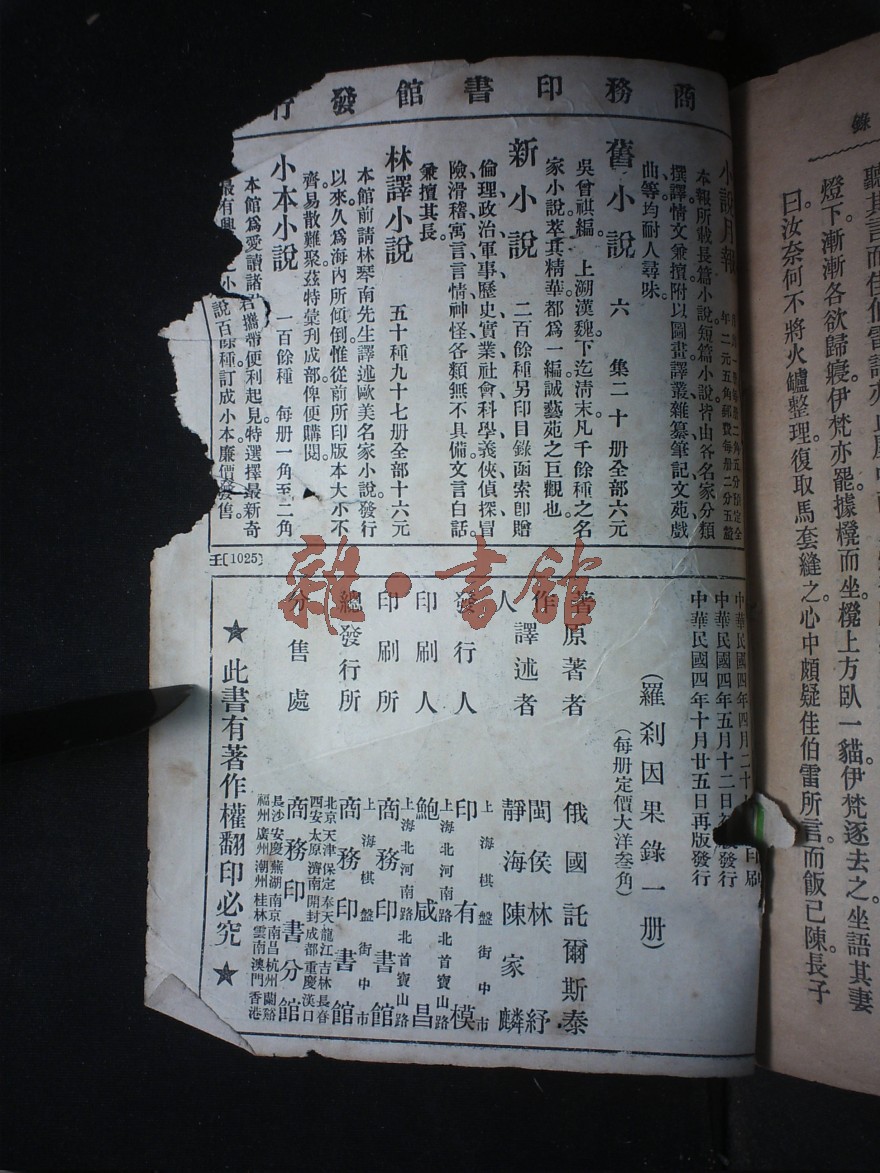 商務印書館發行
小說月報
年二元五角郵費每册二分五釐
本報所載長篇小說短篇小說皆由各名家分類
撰譯情文兼擅附以圖畫譯叢雜纂筆記文苑戲
曲等均耐人尋味。
舊小說 六集二十册全部六元
吳曾祺編。上溯漢魏下迄清末。凡千餘種之名
家小說萃其精華都為一編誠藝苑之巨觀也
新小說 二百餘種另印目錄函索卽贈
倫理政治軍事歷史實業社會科學義俠偵探冒
險滑稽寓言言情神怪各類無不具備文言白話。
兼擅其長。
林譯小說 五十種九十七册全部十六元
本館前請林琴南先生譯述歐美名家小說發行
以來久為海內所傾倒惟從前所印版本大小不
齊易散難聚茲特彙刋成部俾便購閱。
小本小說 一百餘種 每册一角至二角
本館為愛讀諸君攜帶便利起見特選擇最新奇
最有興之小說百餘種訂成小本廉價發售。
王[1025]
中華民國四年四月二十
印刷
中華民國四年五月十二日初版發行
中華民國四年十月廿五日再版發行
(羅刹因果錄一册)
(每册定價大洋叁角)
著作人
原著者 俄國託爾斯泰
譯述者 閩侯林紓
靜海陳家麟
發行人 印有模
上海棋盤街中市
印刷人 鮑咸昌
上海北河南路北首寶山路
印刷所 商務印書館
上海北河南路北首寶山路
總發行所 商務印書館
上海棋盤街中市
分售處 商務印書分館
北京天津保定奉天龍江吉林長春
西安太原濟南開封成都重慶漢口
長沙安慶蕪湖南京南昌杭州蘭谿
福州廣州潮州桂林雲南澳門香港
★此書有著作權翻印必究★
雜·書館
錄
聽其言而佳伯雷語亦止
燈下。漸漸各欲歸寢伊梵亦罷據櫈而坐。櫈上方臥一貓伊梵逐去之坐語其妻
曰汝奈何不將火罏整理。復取馬套縫之。心中頗疑佳伯雷所言。而飯已陳。長子